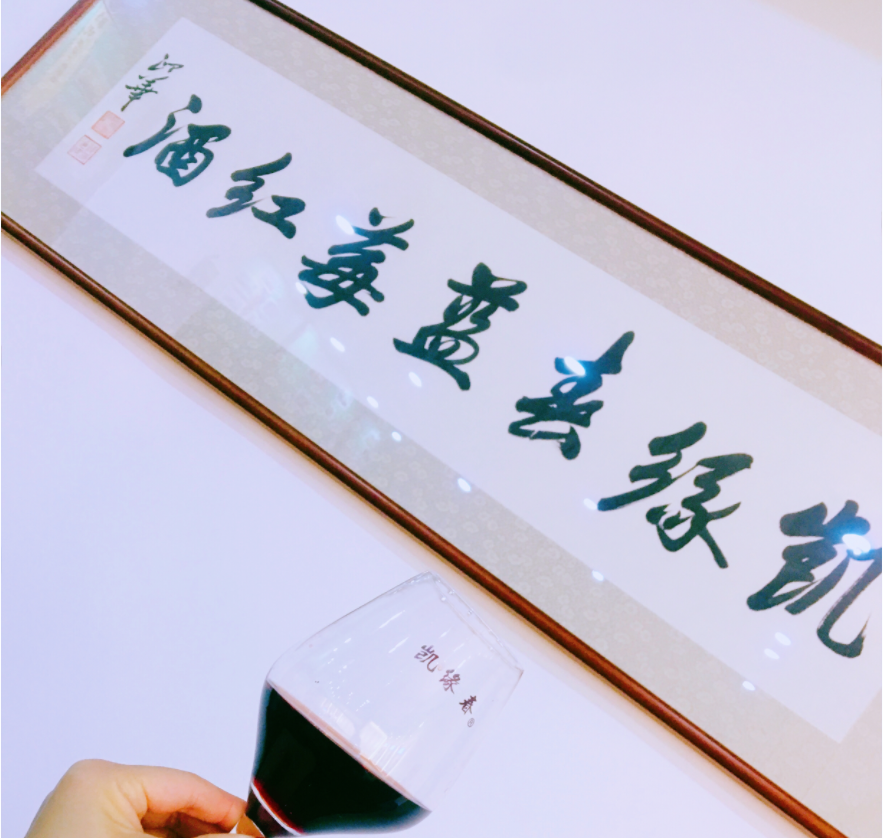 凯缘春蓝莓红酒
凯缘春®